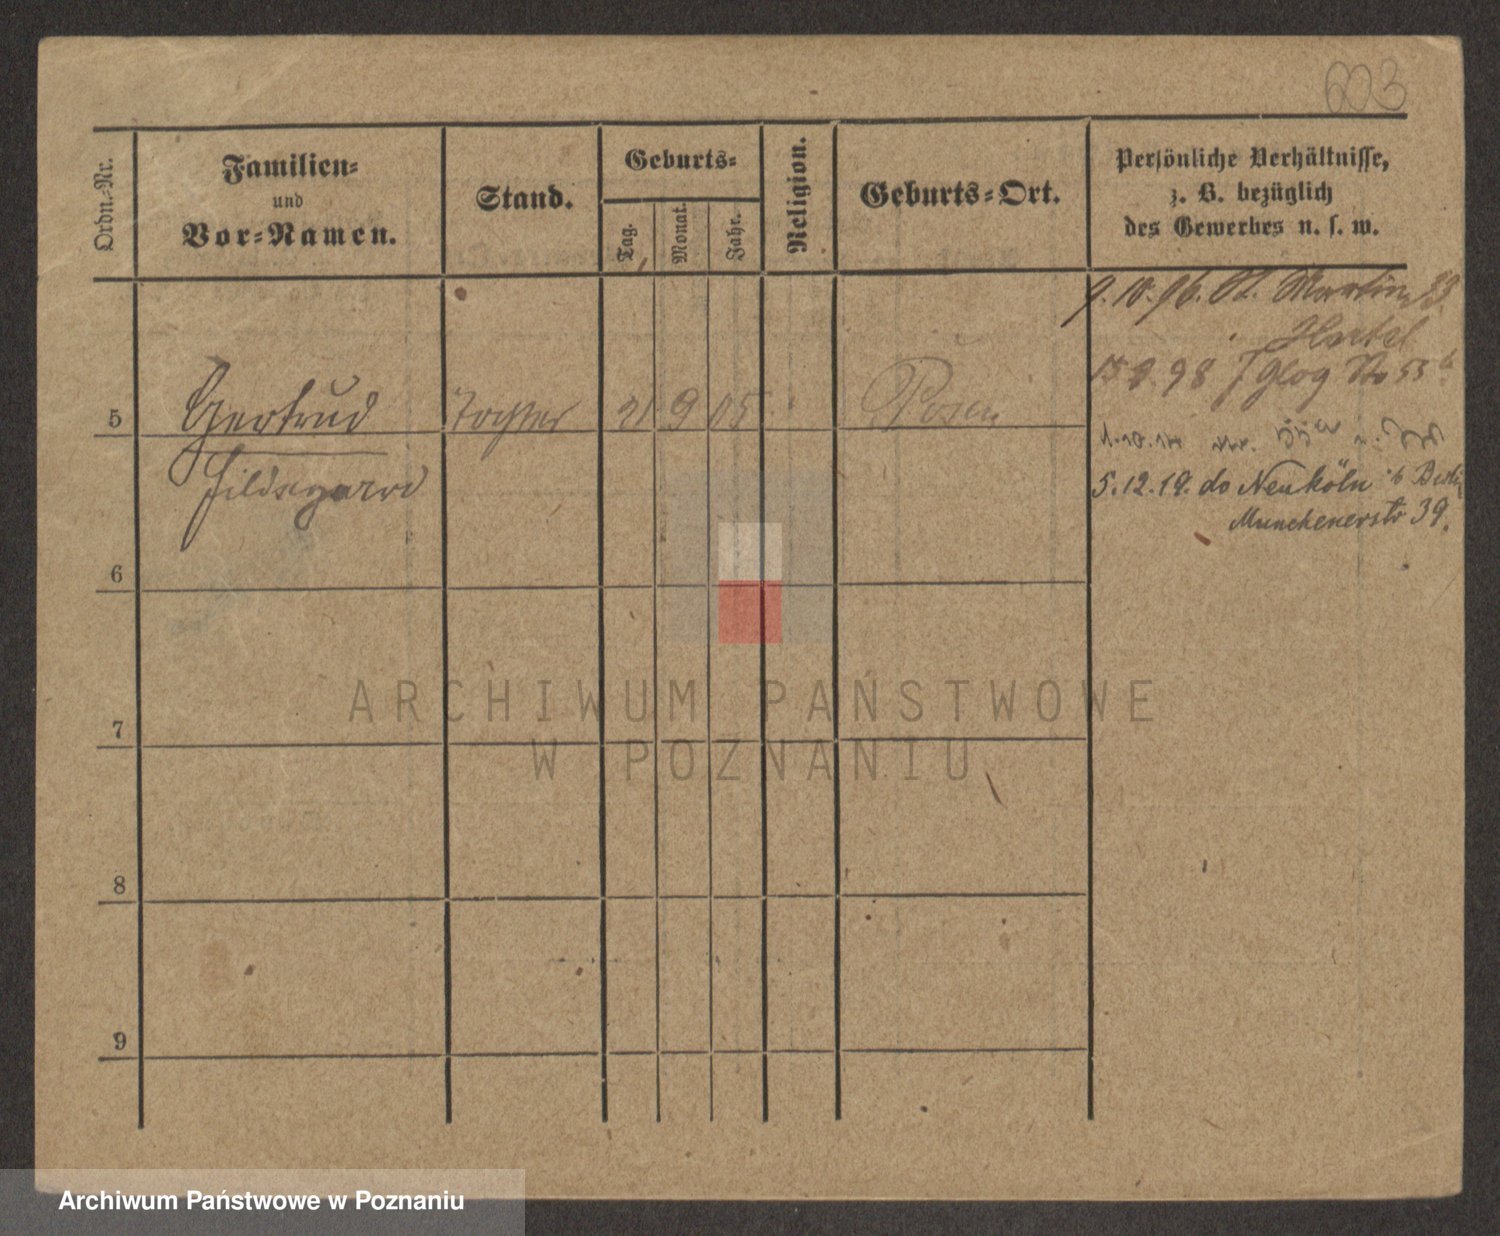 603
Ordn.-Nr.
Familien-
und
Vor-Namen.
Stand.
Geburts-
Tag.
Monat.
Jahr.
Religion.
Geburts-Ort.
Persönliche Verhältnisse,
z. B. bezüglich
des Gewerbes u. s. w.
9.10.96. St. Martin 33
15 9. 98 Glog Str 55
5 Gertrud Tochter 21 9 05 Posen
Hildegard
5.12.19. do Neuköln b Berlin
Munchenerstr 39.
6
7
8
9
ARCHIWUM PAŃSTWOWE
W POZNANIU
Archiwum Państwowe w Poznaniu